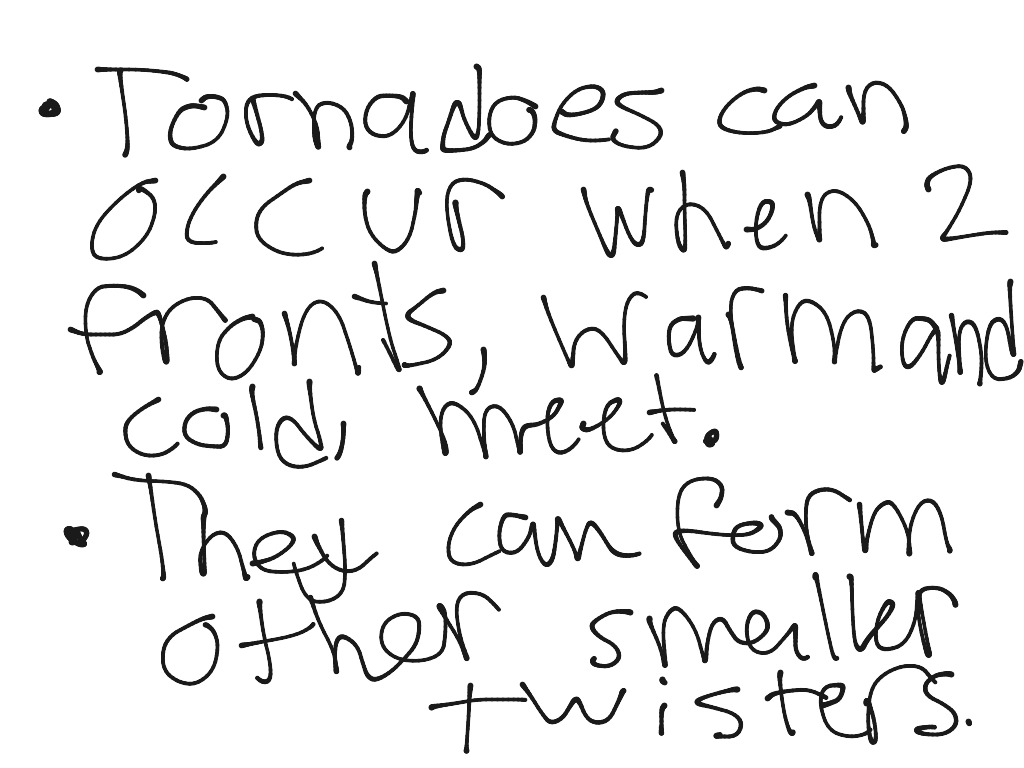 • Tornadoes can
occur when 2
fronts, warm and
cold, meet.
• They can form
other smaller
twisters.